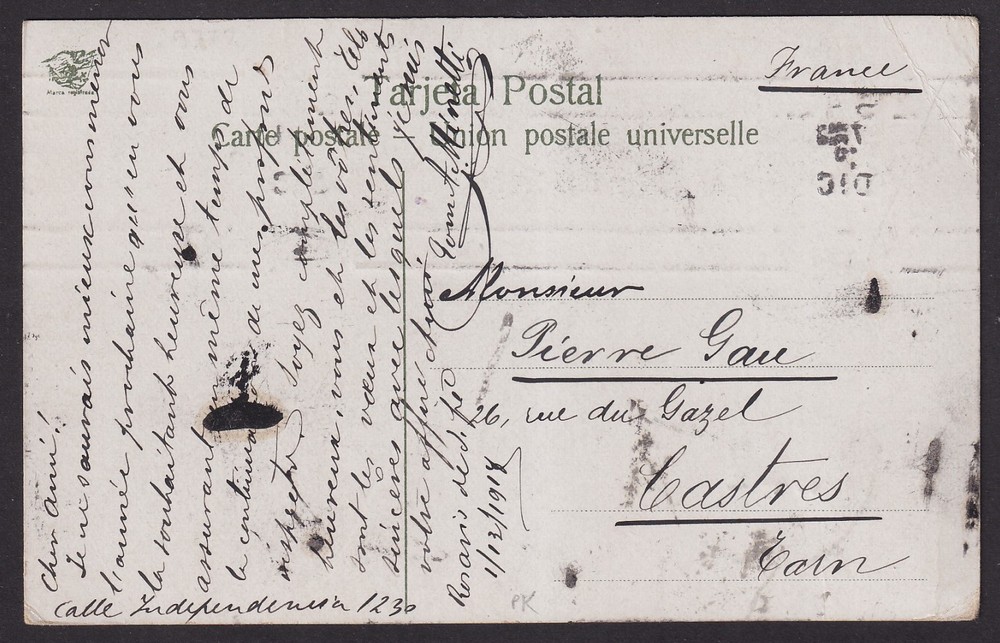 Marca registrada
Tarjeta Postal
Carte postale Union postale universelle
France
DIC
Monsieur
Pierre Gau
26, rue du Gazel
Castres
Tarn
Cher ami!
Je ne saurais mieux consumer
l'année prochaine qu'en vous
la souhaitant heureuse et vous
assurant en même temps de
la continuation de mes profonds
respects. Soyez complètement
heureux, vous et les vôtres, tels
sont les vœux et les sentiments
sincères avec lesquels je suis
votre affmé
Rosario de
1/12/1918
Calle Independencia 1230
PK